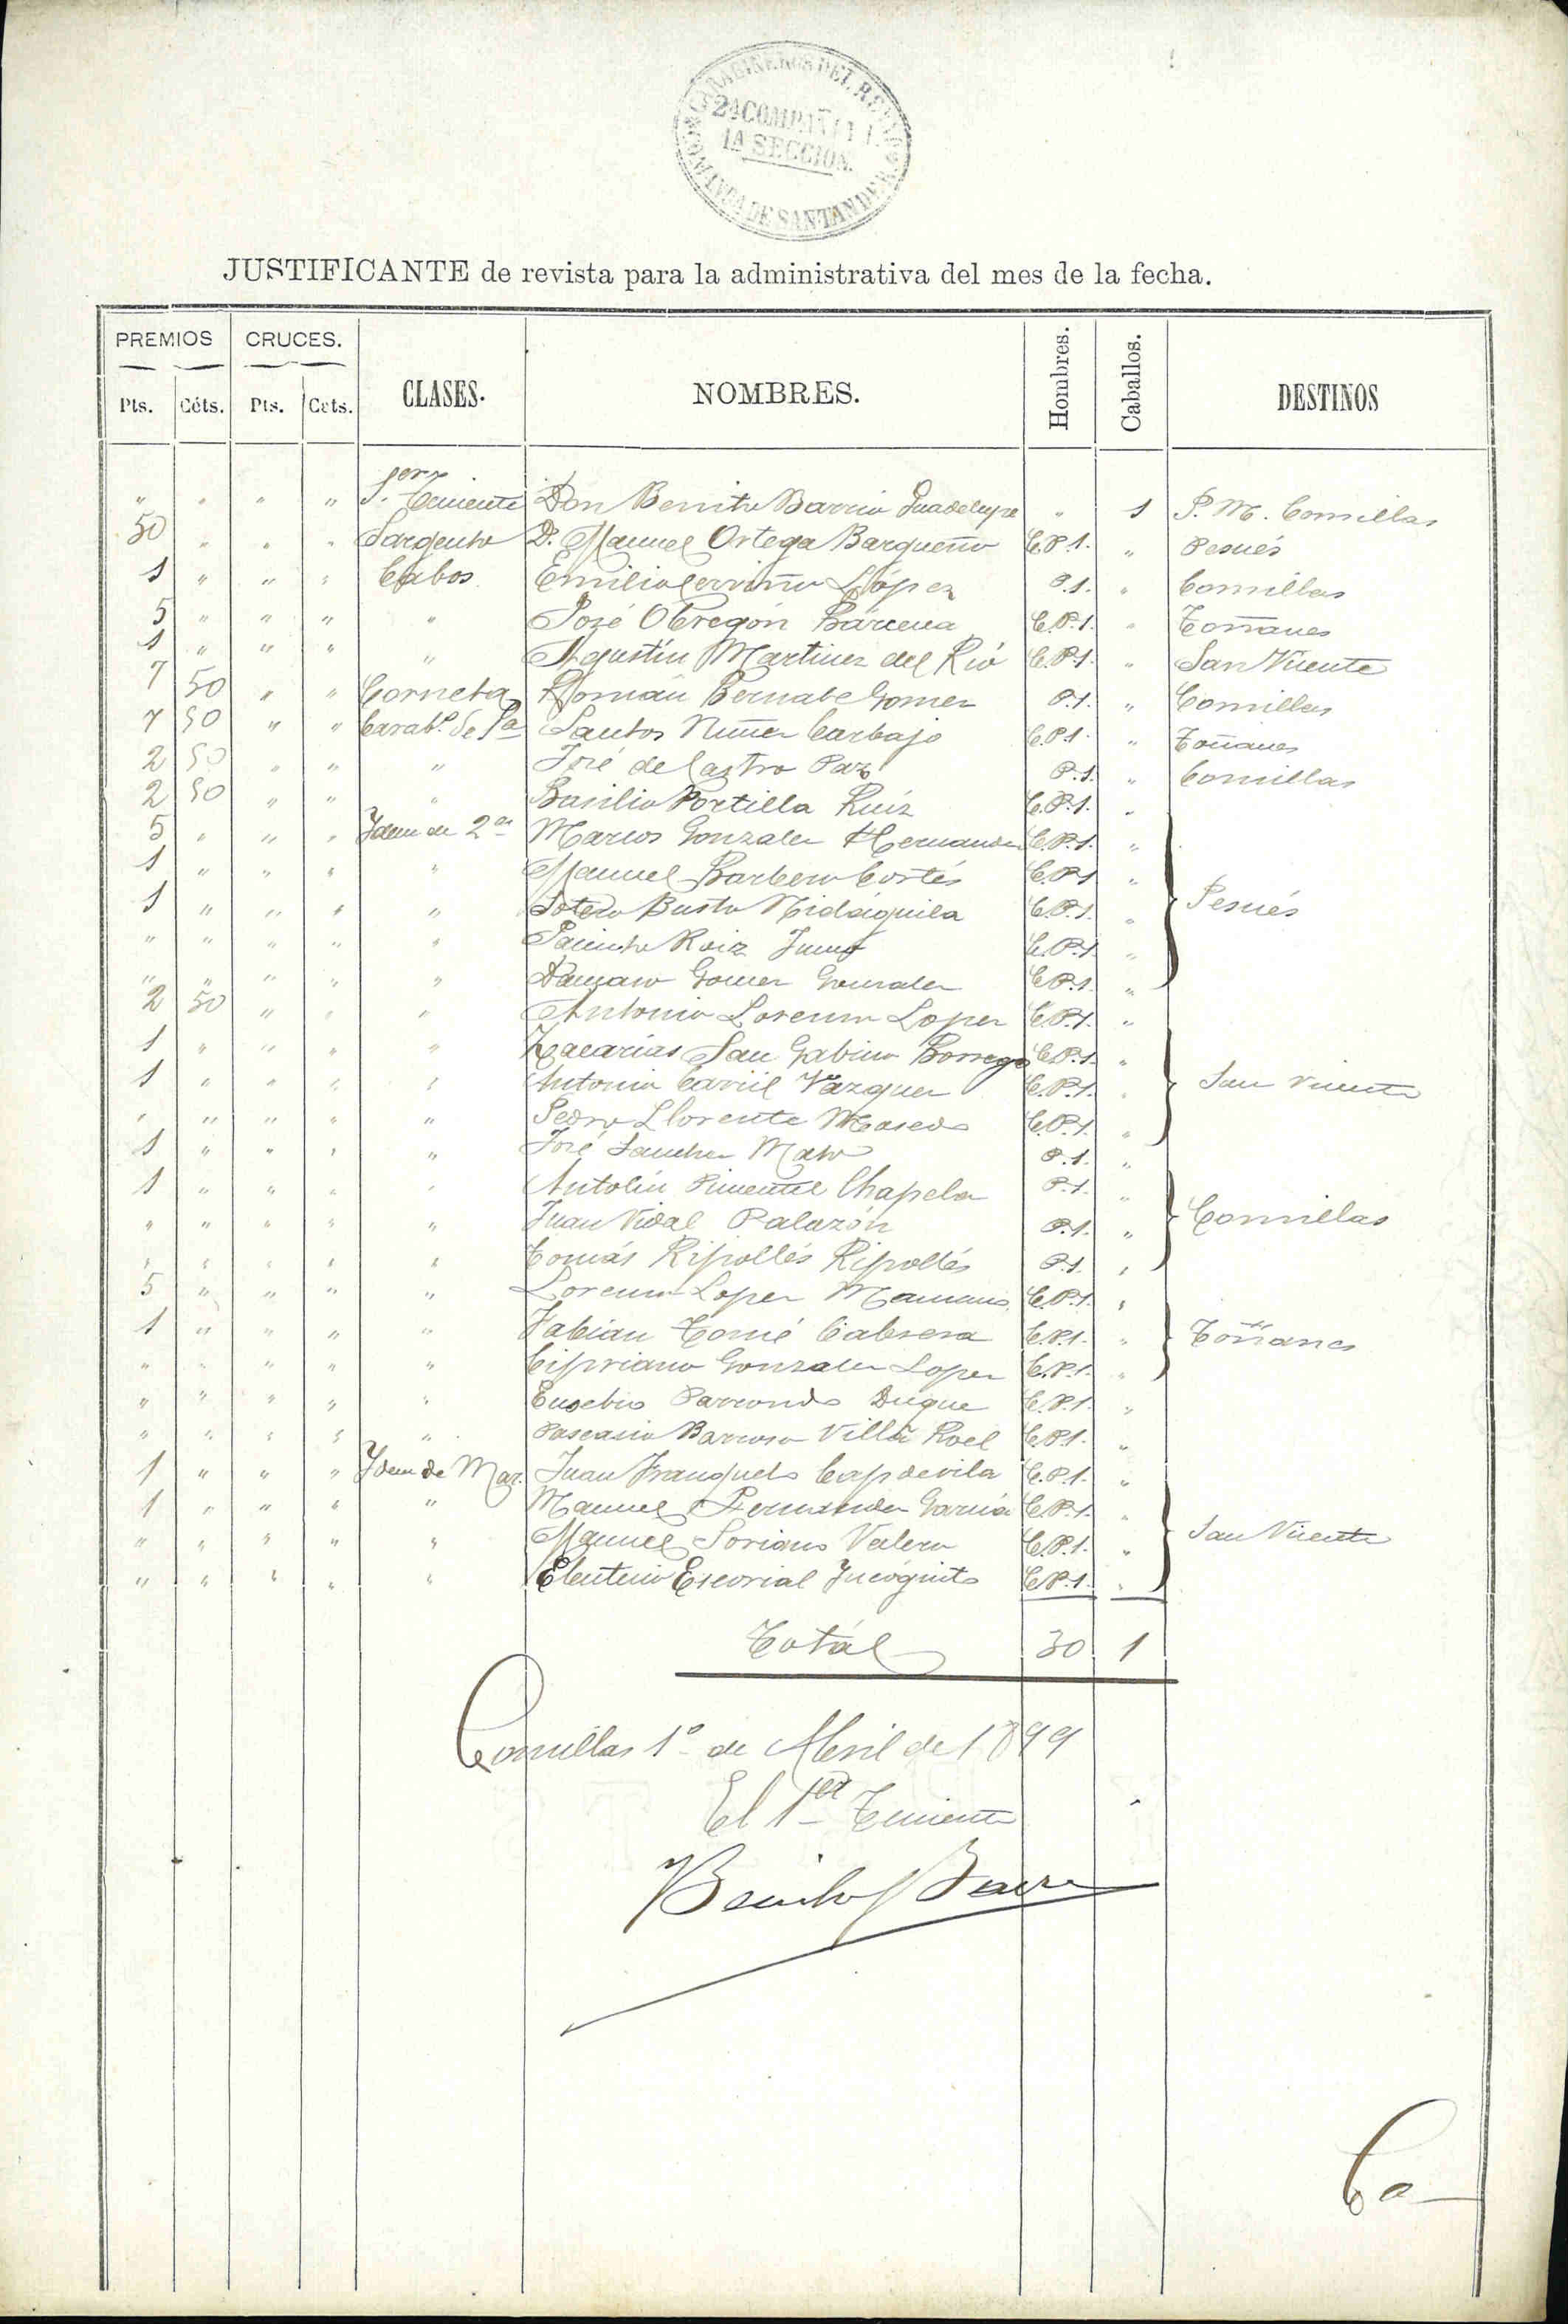 CARABINEROS DEL REINO
2ª COMPAÑIA
1A SECCION.
COMANDA DE SANTANDER
JUSTIFICANTE de revista para la administrativa del mes de la fecha.
PREMIOS CRUCES. CLASES. NOMBRES. Hombres. Caballos. DESTINOS
Pts. Céts. Pts. Cets.
" " " " 1.er Teniente Don Benito Barrio Guadelupe " 1 P. M. Comillas
30 " " " Sargento D. Manuel Ortega Barqueño C.P.1. " Pesués
1 " " " Cabos Emilio Cerviño López P.1. " Comillas
5 " " " " José Obregón Bárcena C.P.1. " Toñanes
1 " " " " Agustín Martinez del Rió C.P.1. " San Vicente
7 50 " " Corneta Román Bernabe Gomez P.1. " Comillas
7 50 " " Carab.º de 1a Santos Nuñez Carbajo C.P.1. " Toñanes
2 50 " " " José de Castro Paz P.1. " Comillas
2 50 " " " Basilio Portilla Ruíz C.P.1. "
5 " " " Ydem de 2a Marcos Gonzalez Hernandez C.P.1. "
1 " " " " Manuel Barbero Cortés C.P.1 "
1 " " " " Sotero Busto Midáguila C.P.1. " Pesués
" " " " " Jacinto Roiz C.P.1. "
" " " " " Damaso Gomez Gonzalez C.P.1. "
2 50 " " " Antonio Lorenzo Lopez C.P.1. "
1 " " " " Zacarias San Gabino Borrego C.P.1. "
1 " " " " Antonio Carril Vazquez C.P.1. " San Vicente
" " " " " Pedro Llorente Maseda C.P.1. "
1 " " " " José Sanchez Mato P.1. "
1 " " " " Antolín Pimentel Chapela P.1. "
" " " " " Juan Vidal Palazón P.1. " Comillas
" " " " " Tomás Ripollés Ripollés P.1. "
5 " " " " Lorenzo Lopez C.P.1. "
1 " " " " Fabian Tomé Cabrera C.P.1. " Toñanes
" " " " " Cipriano Gonzalez Lopez C.P.1. "
" " " " " Eusebio Parrondo Duque C.P.1. "
" " " " " Pascasio Barroso Villa Roel C.P.1. "
1 " " " Ydem de Mar. Juan Franquelo Capdevila C.P.1. "
1 " " " " Manuel Fernandez García C.P.1. "
" " " " " Manuel Soriano Valero C.P.1. " San Vicente
" " " " " Eleuterio Escorial Yncógnito C.P.1. "
Totál 30 1
Comillas 1º de Abril de 1899
El 1er Teniente
Benito Barrio